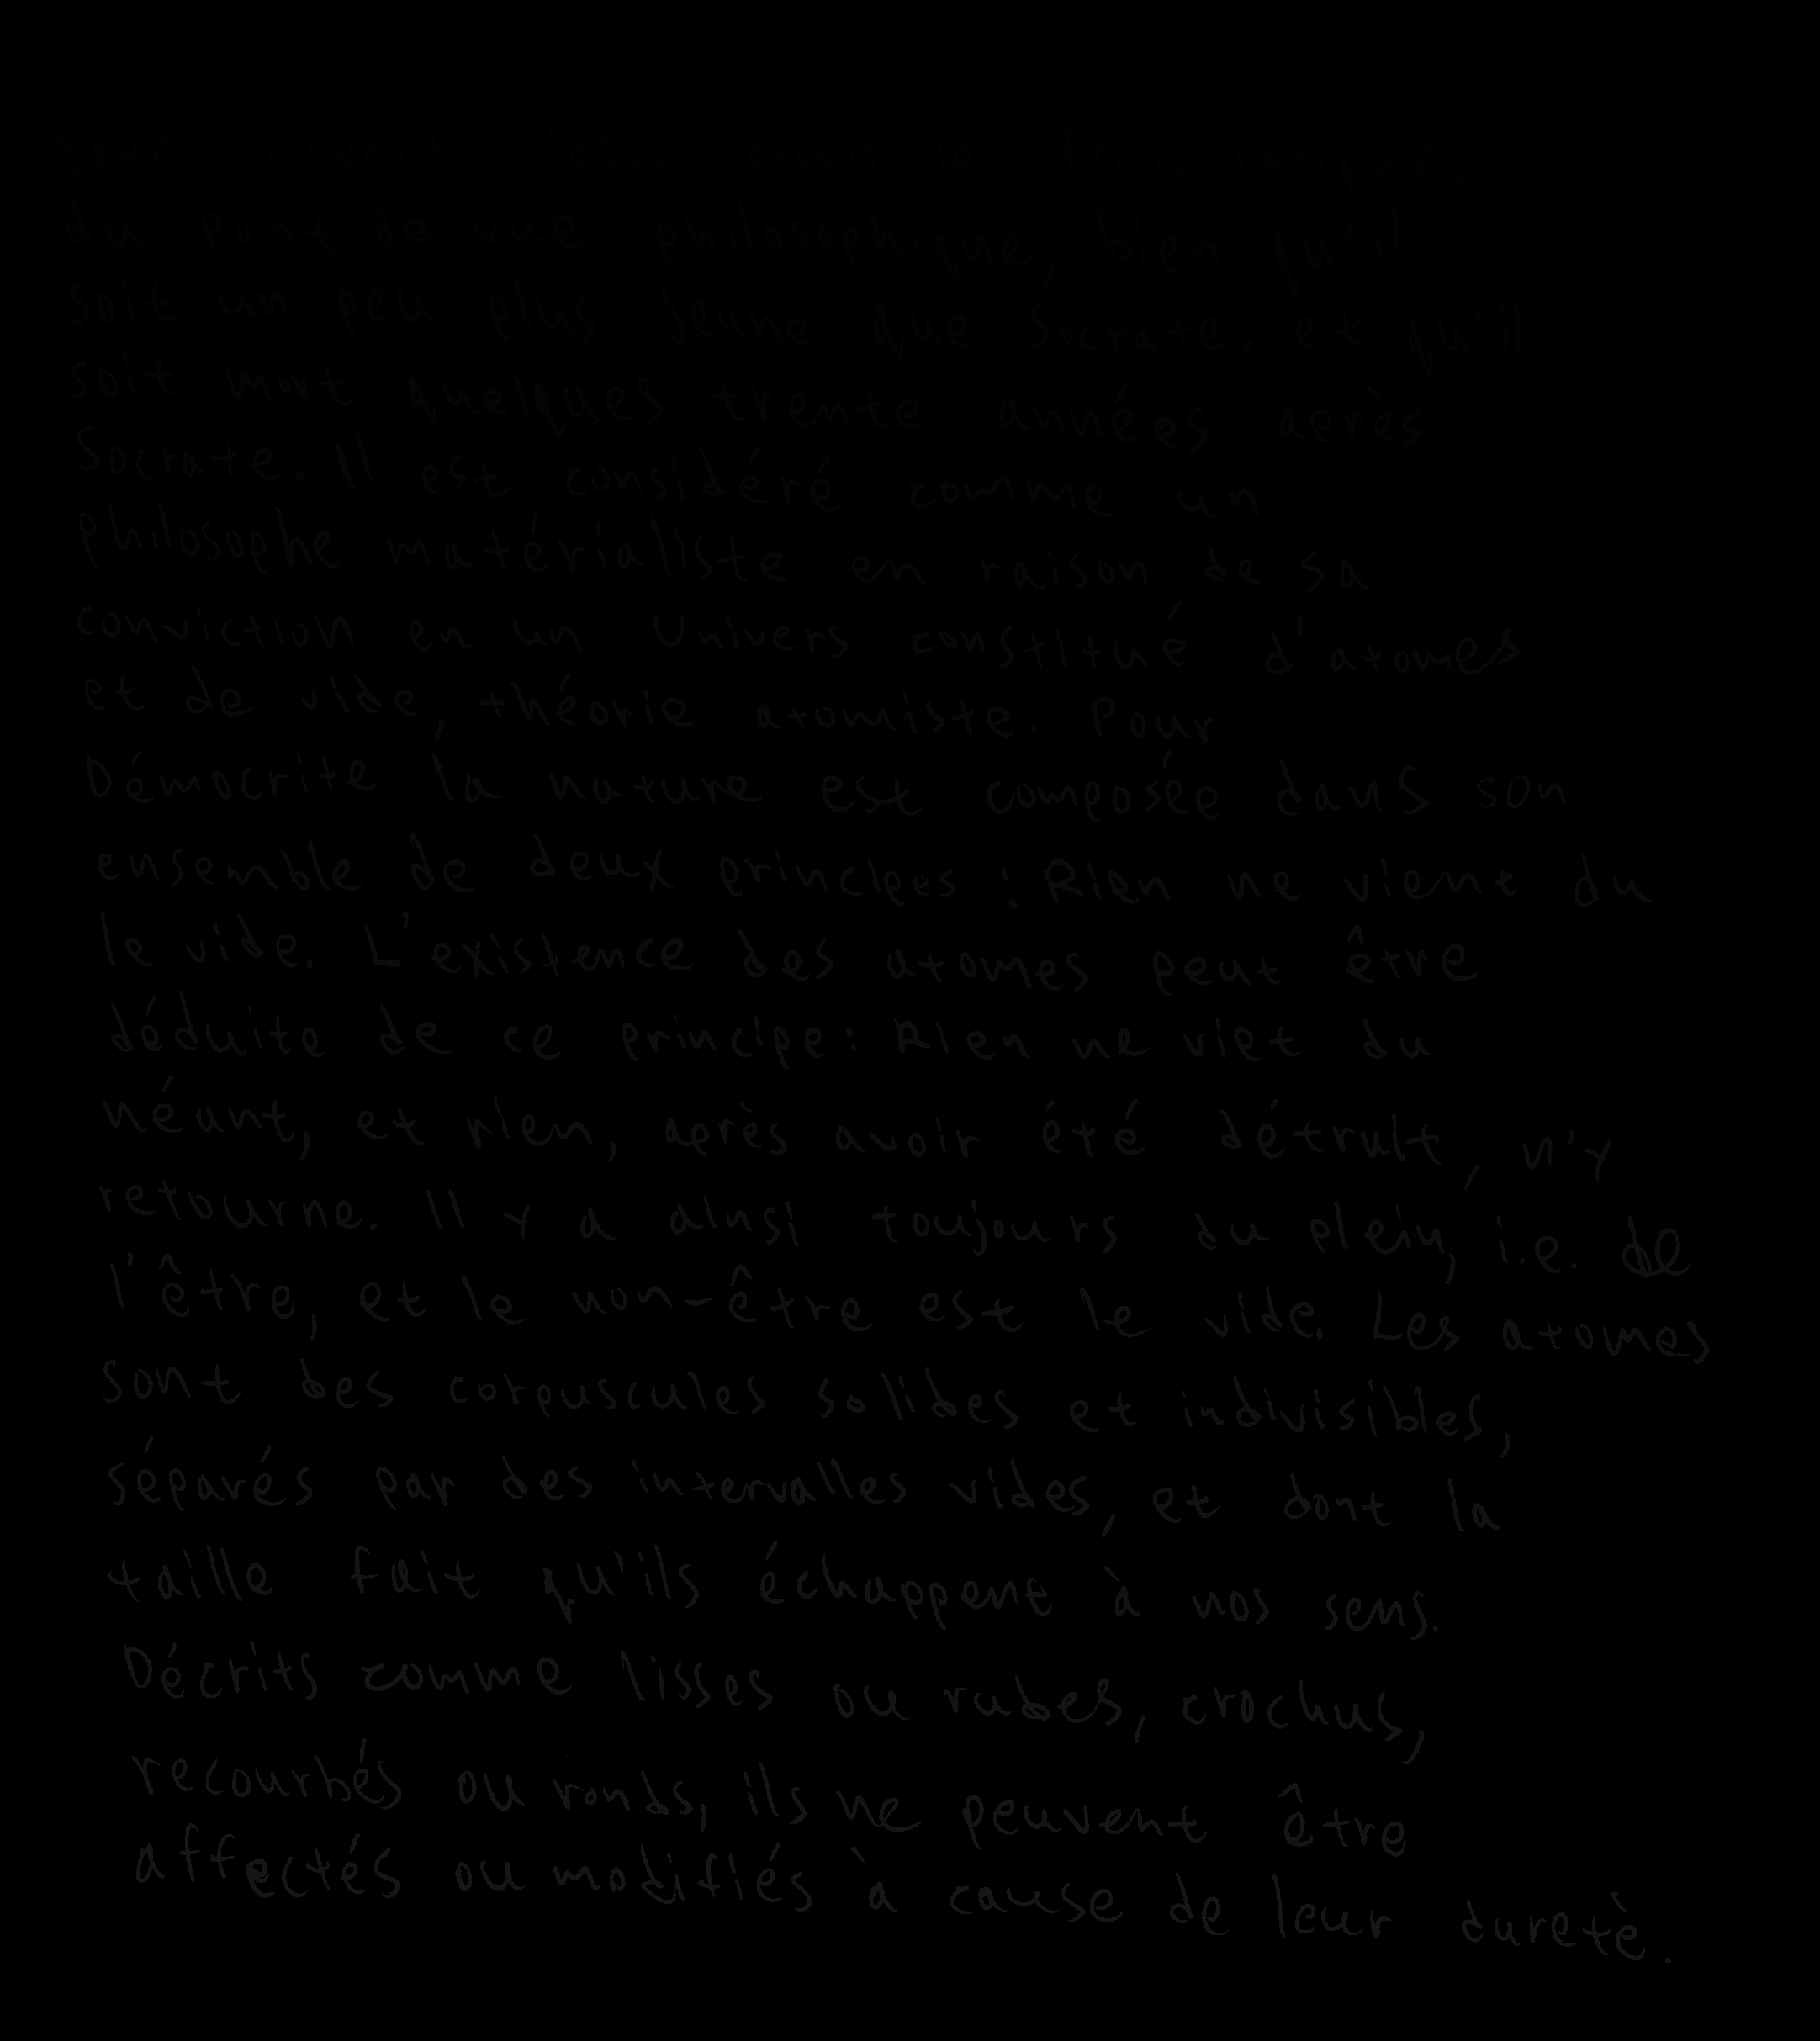 Démocrite d'Abdère était un philosophe
grec souvent classé parmi les Présocratiques
du point de vue philosophique, bien qu'il
soit un peu plus jeune que Socrate, et qu'il
soit mort quelques trente années après
Socrate. Il est considéré comme un
philosophe matérialiste en raison de sa
conviction en un Univers constitué d'atomes
et de vide, théorie atomiste. Pour
Démocrite la nature est composée dans son
ensemble de deux principes : Rien ne vient du
le vide. L'existence des atomes peut être
déduite de ce principe : Rien ne viet du
néant, et rien, après avoir été détruit, n'y
retourne. Il y a ainsi toujours du plein, i.e. de
l'être, et le non-être est le vide. Les atomes
sont des corpuscules solides et indivisibles,
séparés par des intervalles vides, et dont la
taille fait qu'ils échappent à nos sens.
Décrits comme lisses ou rudes, crochus,
recourbés ou ronds, ils ne peuvent être
affectés ou modifiés à cause de leur duretè.